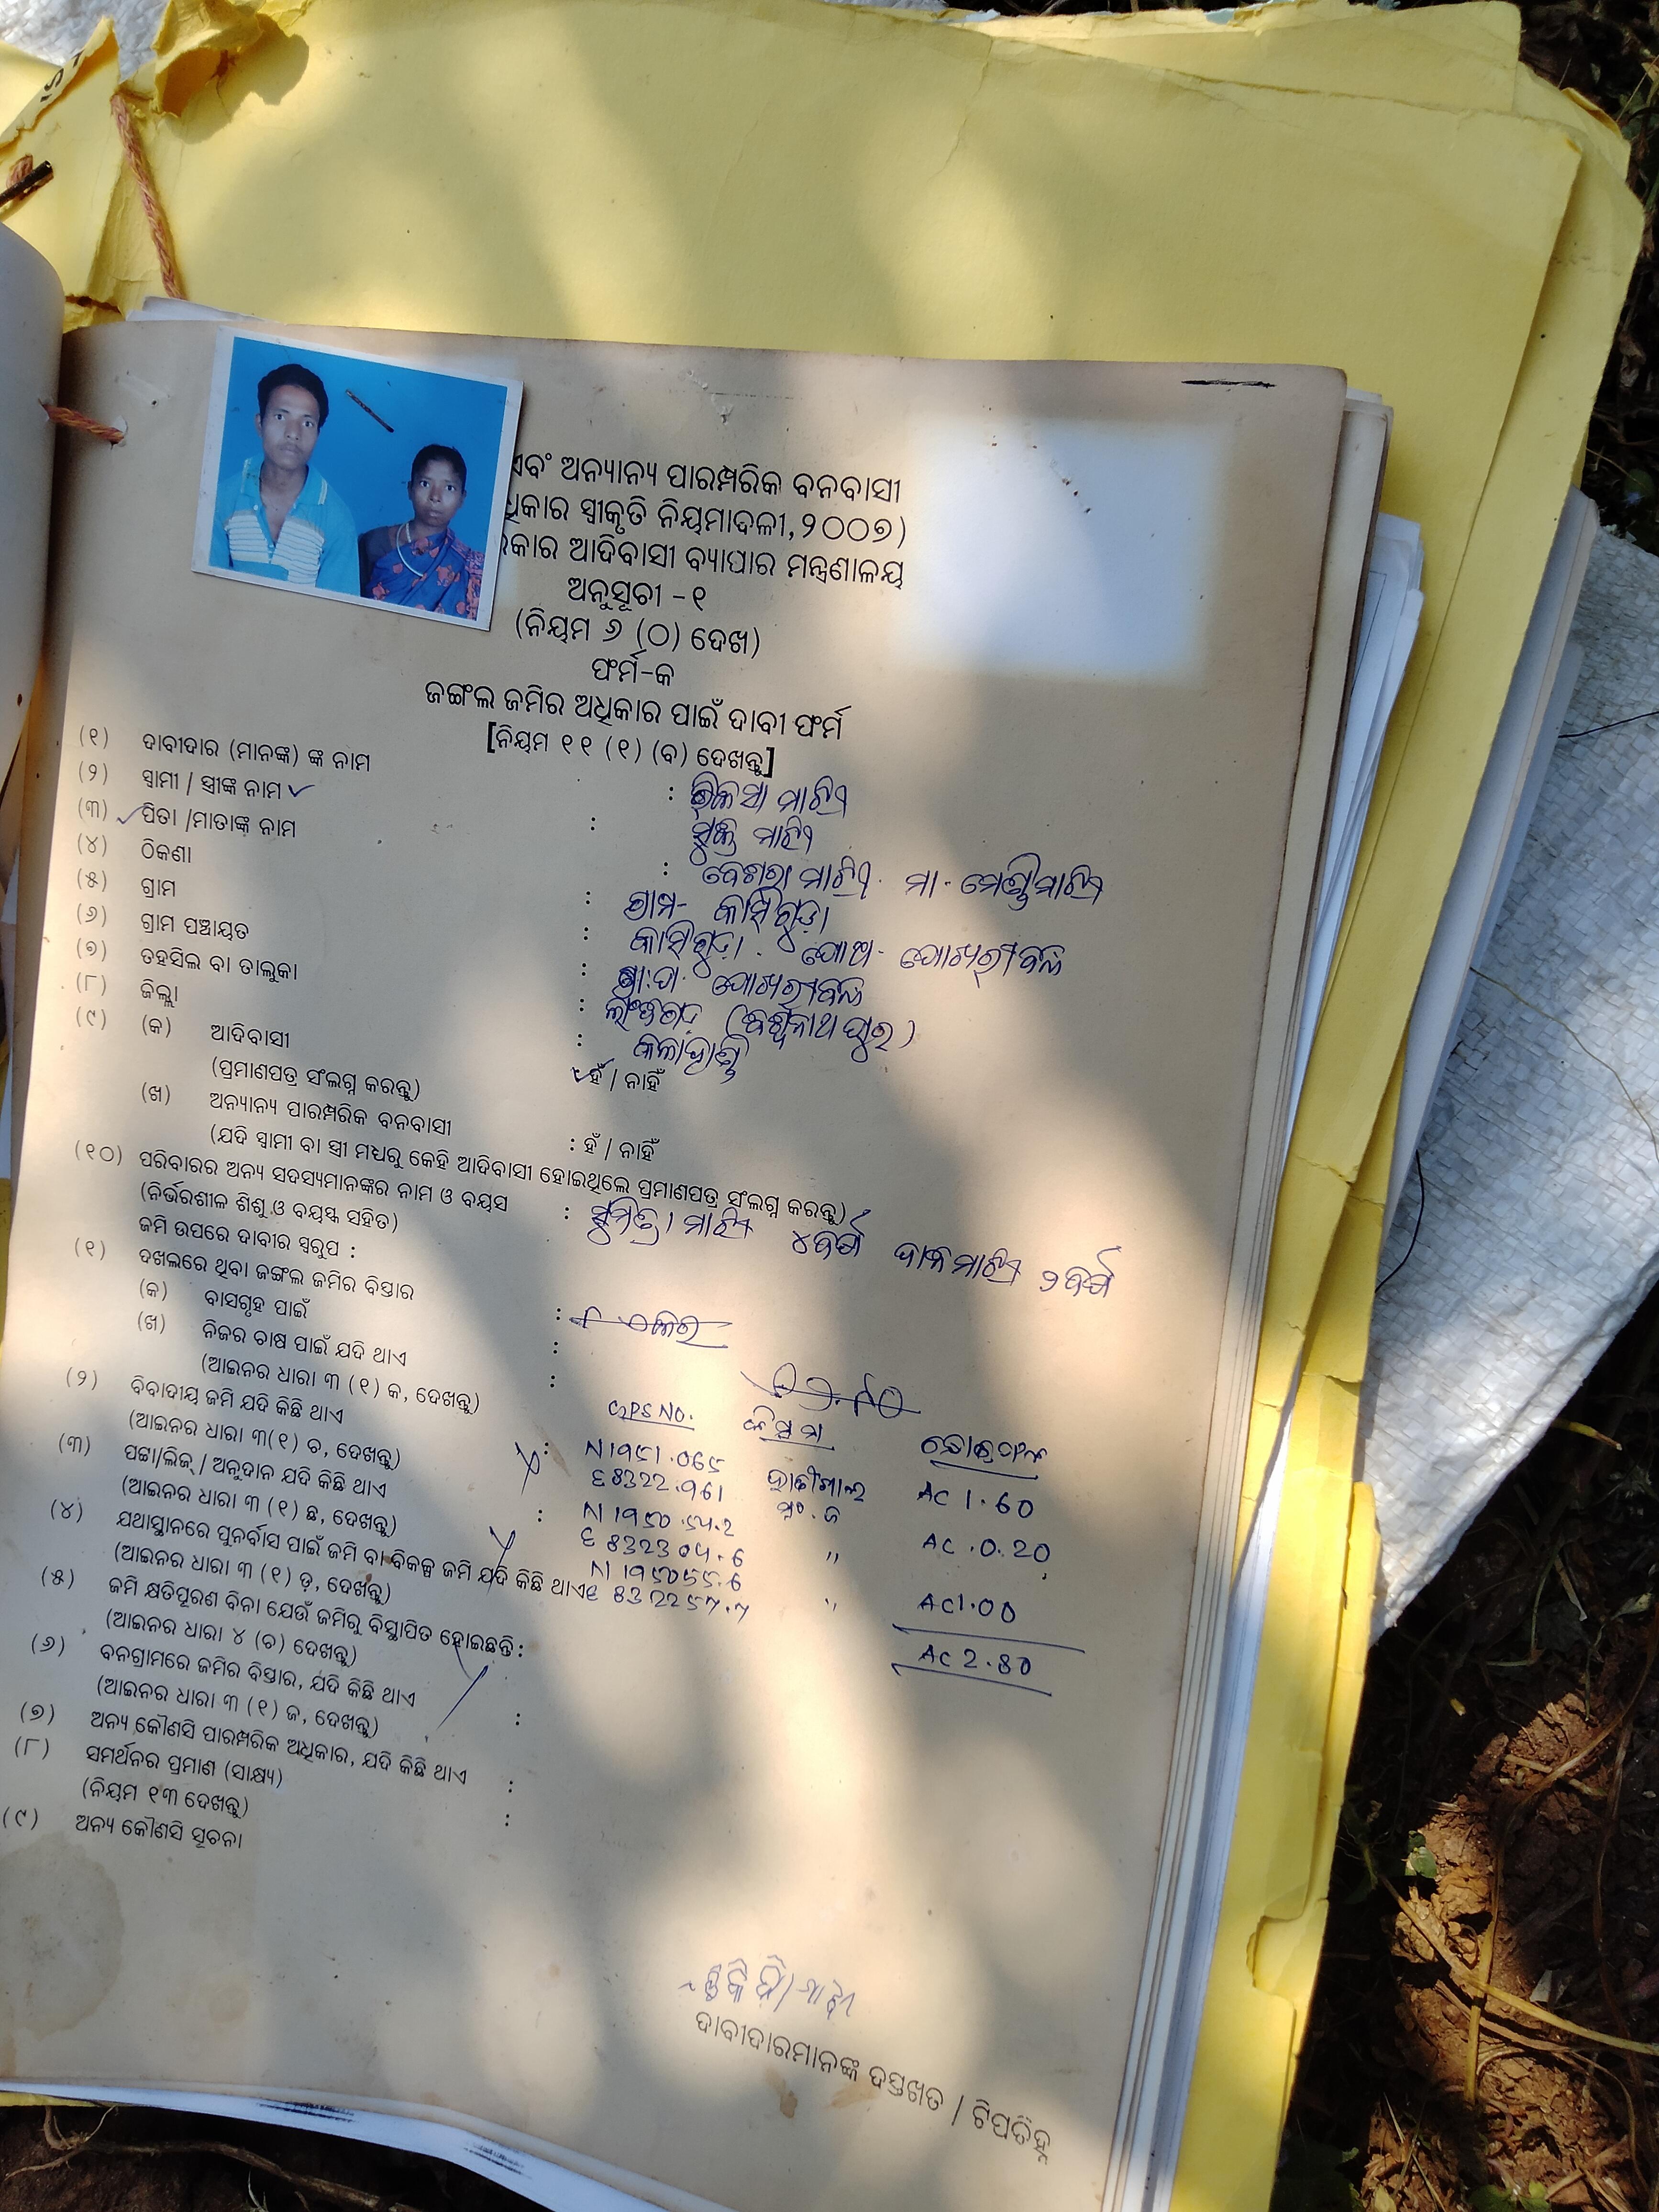 ଏବଂ ଅନ୍ୟାନ୍ୟ ପାରମ୍ପରିକ ବନବାସୀ
ଧିକାର ସ୍ୱୀକୃତି ନିୟମାବଳୀ,୨୦୦୭)
ରକାର ଆଦିବାସୀ ବ୍ୟାପାର ମନ୍ତ୍ରଣାଳୟ
ଅନୁସୂଚୀ -୧
(ନିୟମ ୬ (୦) ଦେଖ)
ଫର୍ମ-କ
ଜଙ୍ଗଲ ଜମିର ଅଧିକାର ପାଇଁ ଦାବୀ ଫର୍ମ
[ନିୟମ ୧୧ (୧) (ବ) ଦେଖନ୍ତୁ]
(୧) ଦାବୀଦାର (ମାନଙ୍କ) ଙ୍କ ନାମ : ମାଝି
(୨) ସ୍ୱାମୀ / ସ୍ତ୍ରୀଙ୍କ ନାମ : ମାଝି
(୩) ପିତା /ମାତାଙ୍କ ନାମ : ମାଝି. ମା.
(୪) ଠିକଣା : ଗ୍ରାମ-
(୫) ଗ୍ରାମ :
(୬) ଗ୍ରାମ ପଞ୍ଚାୟତ : ଗ୍ରା.ପ.
(୭) ତହସିଲ ବା ତାଲୁକା : ଲାଂଜିଗଡ଼ (ବିଶ୍ୱନାଥପୁର)
(୮) ଜିଲ୍ଲା : କଳାହାଣ୍ଡି
(୯) (କ) ଆଦିବାସୀ ହଁ / ନାହିଁ
(ପ୍ରମାଣପତ୍ର ସଂଲଗ୍ନ କରନ୍ତୁ)
(ଖ) ଅନ୍ୟାନ୍ୟ ପାରମ୍ପରିକ ବନବାସୀ : ହଁ / ନାହିଁ
(ଯଦି ସ୍ୱାମୀ ବା ସ୍ତ୍ରୀ ମଧ୍ୟରୁ କେହି ଆଦିବାସୀ ହୋଇଥିଲେ ପ୍ରମାଣପତ୍ର ସଂଲଗ୍ନ କରନ୍ତୁ)
(୧୦) ପରିବାରର ଅନ୍ୟ ସଦସ୍ୟମାନଙ୍କର ନାମ ଓ ବୟସ : ସୁମିତ୍ରା ମାଝି ୪ବର୍ଷ ମାଝି ୨ବର୍ଷ
(ନିର୍ଭରଶୀଳ ଶିଶୁ ଓ ବୟସ୍କ ସହିତ)
ଜମି ଉପରେ ଦାବୀର ସ୍ୱରୂପ :
(୧) ଦଖଲରେ ଥିବା ଜଙ୍ଗଲ ଜମିର ବିସ୍ତାର :
(କ) ବାସଗୃହ ପାଇଁ :
(ଖ) ନିଜର ଚାଷ ପାଇଁ ଯଦି ଥାଏ :
(ଆଇନର ଧାରା ୩ (୧) କ, ଦେଖନ୍ତୁ)
GPS NO. କିସମ
(୨) ବିବାଦୀୟ ଜମି ଯଦି କିଛି ଥାଏ :
(ଆଇନର ଧାରା ୩(୧) ଚ, ଦେଖନ୍ତୁ)
AC 1.60
(୩) ପଟ୍ଟା/ଲିଜ୍ / ଅନୁଦାନ ଯଦି କିଛି ଥାଏ :
(ଆଇନର ଧାରା ୩ (୧) ଛ, ଦେଖନ୍ତୁ)
" AC .0.20
(୪) ଯଥାସ୍ଥାନରେ ପୁନର୍ବାସ ପାଇଁ ଜମି ବା ବିକଳ୍ପ ଜମି ଯଦି କିଛି ଥାଏ
(ଆଇନର ଧାରା ୩ (୧) ଡ଼, ଦେଖନ୍ତୁ)
" AC1.00
(୫) ଜମି କ୍ଷତିପୂରଣ ବିନା ଯେଉଁ ଜମିରୁ ବିସ୍ଥାପିତ ହୋଇଛନ୍ତି :
(ଆଇନର ଧାରା ୪ (ଚ) ଦେଖନ୍ତୁ)
AC 2.80
(୬) ବନଗ୍ରାମରେ ଜମିର ବିସ୍ତାର, ଯଦି କିଛି ଥାଏ :
(ଆଇନର ଧାରା ୩ (୧) ଜ, ଦେଖନ୍ତୁ)
(୭) ଅନ୍ୟ କୌଣସି ପାରମ୍ପରିକ ଅଧିକାର, ଯଦି କିଛି ଥାଏ :
(୮) ସମର୍ଥନର ପ୍ରମାଣ (ସାକ୍ଷ୍ୟ) :
(ନିୟମ ୧୩ ଦେଖନ୍ତୁ)
(୯) ଅନ୍ୟ କୌଣସି ସୂଚନା
ଦାବୀଦାରମାନଙ୍କ ଦସ୍ତଖତ / ଟିପଚିହ୍ନ